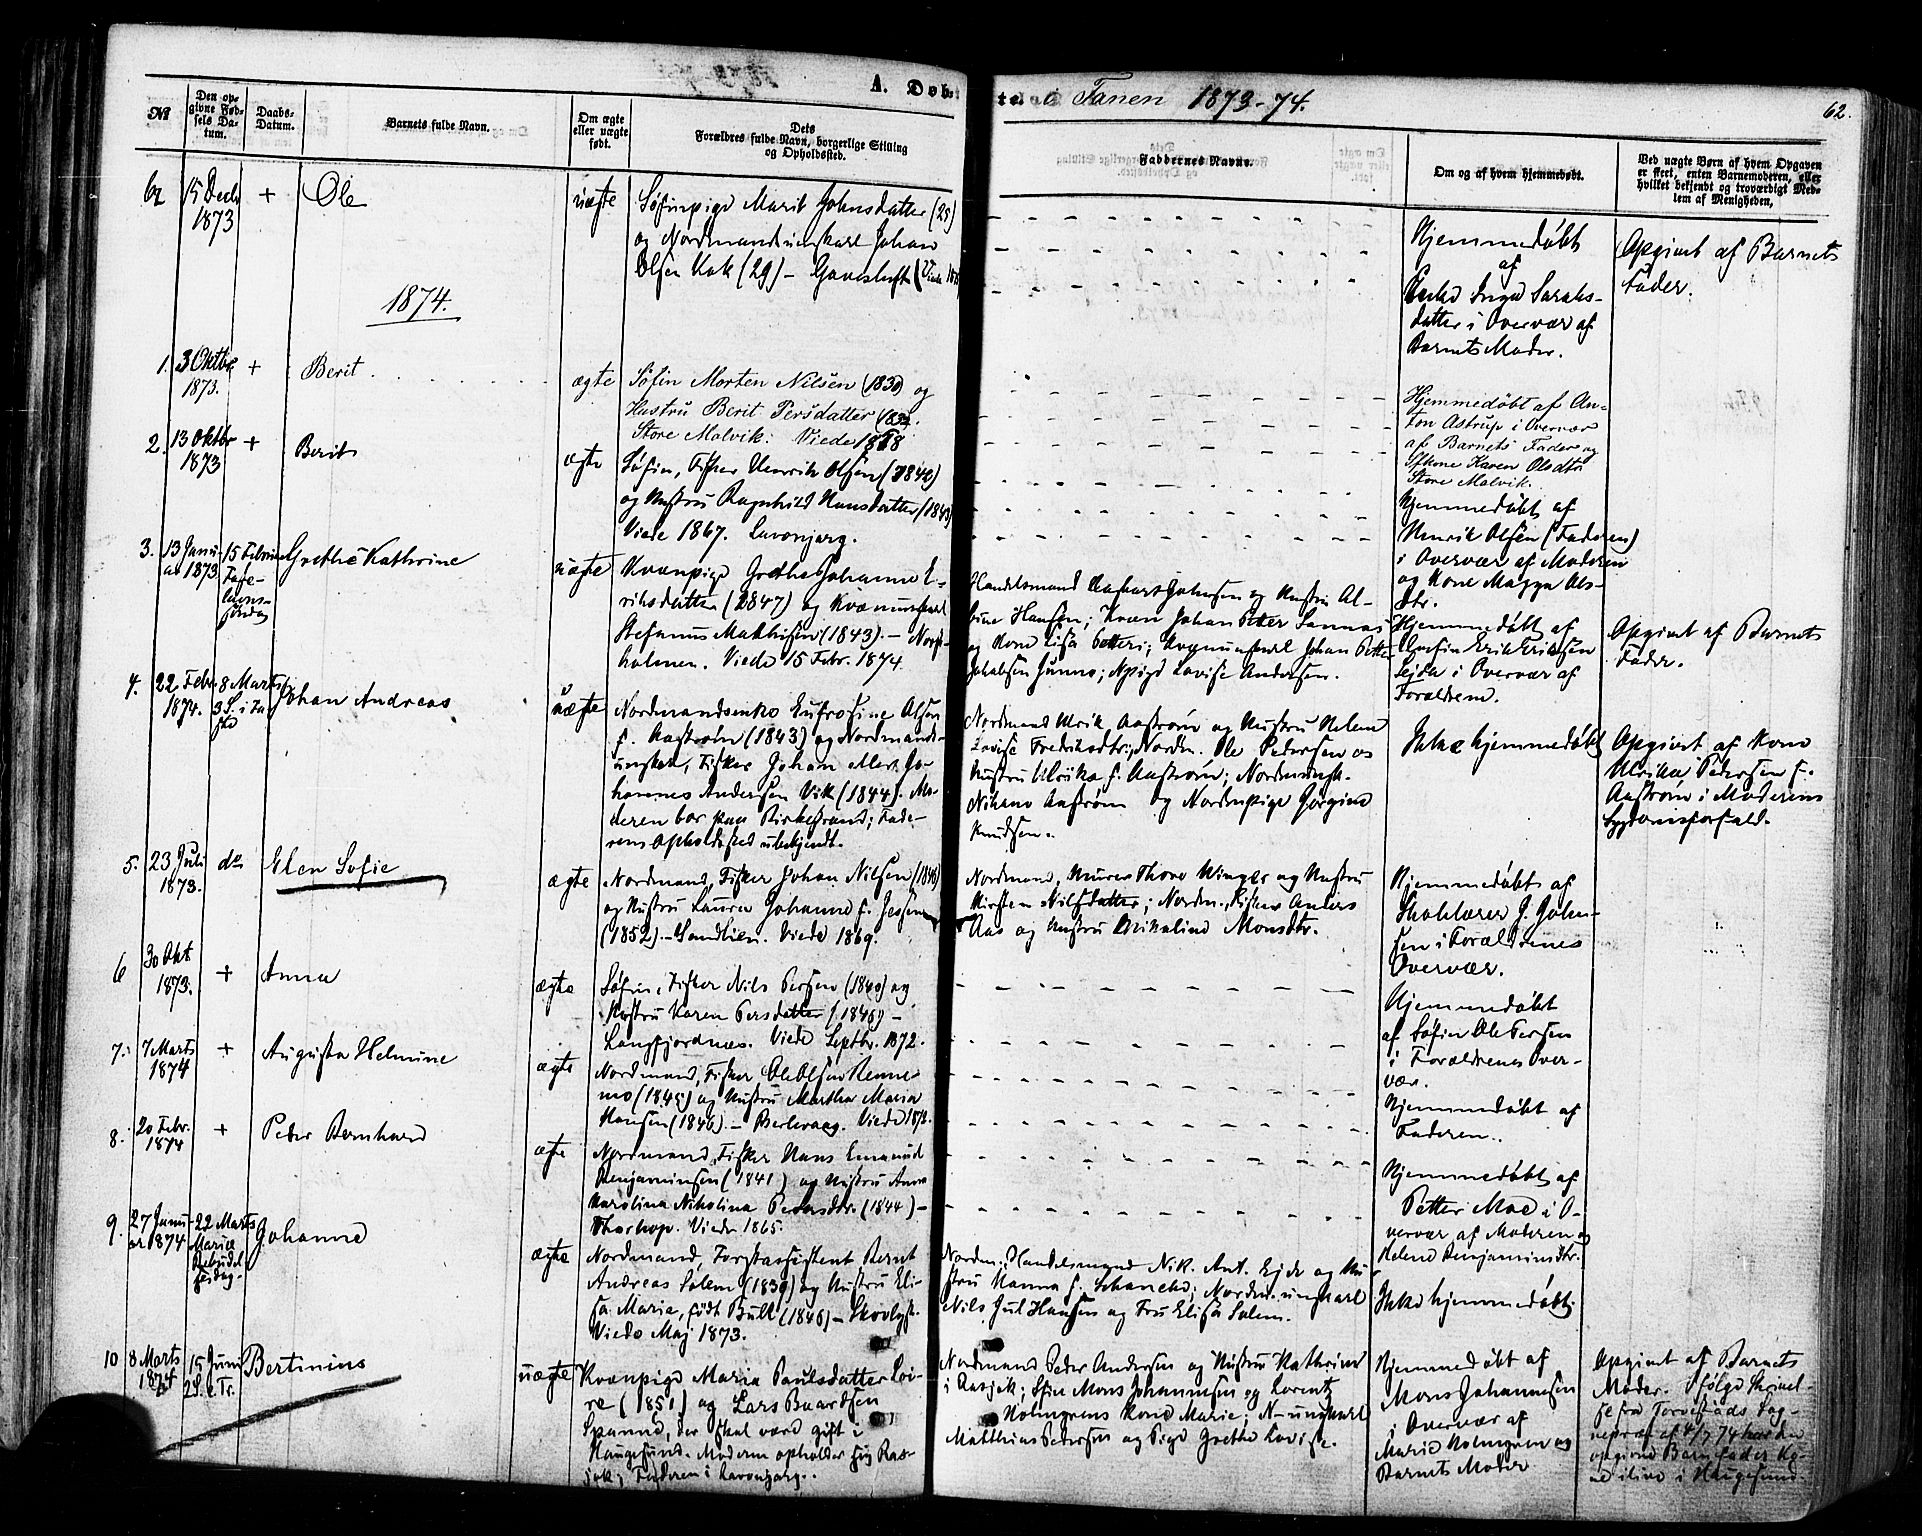 A. Døb-
te i Tanen 1873-74.
62.
№
Den op-
givne Fød-
sels Da-
tum.
Daabs-
Datum.
Barnets fulde Navn.
Om ægte
eller uægte
født.
Dets
Forældres fulde Navn, borgerlige Stilling
og Opholdssted.
Faddernes Navne.
Om og af hvem hjemmedøbt.
Ved uægte Børn af hvem Opgaven
er skeet, enten Barnemoderen, eller
hvilket bekjendt og troværdigt Med-
lem af Menigheden,
15 Decb
1873
+
Ole
uægte
Søfinpige Marit Johnsdatter (25)
og Nordmandsunkarl Johan
Olsen (29) –
Hjemmedøbt
af
Inga Sarahs-
datter i Overvær af
Barnets Moder.
Opgivet af Barnets
Fader.
1874.
1.
3 Oktbr
1873.
+
Berit
ægte
Søfin Morten Nilsen (1830) og
Hustru Berit Persdatter
Store Molvik. Viede 1868
Hjemmedøbt af An-
ton Astrup i Overvær
af Barnets Fader og
Kone Karen Olsdtr
Store Molvik.
2.
13 Oktbr
1873
+
Berit
ægte
Søfin, Fisker Henrik Olsen (1842)
og Hustru Ragnhild Hansdatter (1843)
Viede 1867. Lavonjarg.
Hjemmedøbt af
Henrik Olsen (Faderen)
i Overvær af Moderen
og Kone Magga Ols-
dtr.
3.
13 Janu-
ar 1873
15 Februar
Faste-
lavns-
søndag
Grethe Kathrine
uægte
Kvænpige Grethe Johanne E-
riksdatter (2847) og Kvænunkarl
Stefanus Mathisen (1843). –
holmen. Viede 15 Febr. 1874.
Handelsmand Johnsen og Hustru Al-
bine Hansen; Kvæn Johan Petter Lannas
og Kone Lisa Petteri; Kvænunkarl Johan Petter
Jakobsen Junno; Npige Lovise Andersen.
Hjemmedøbt af
Erik Eriksen
Seida i Overvær af
Forældrene.
Opgivet af Barnets
Fader.
4.
22 Febr.
1874.
8 Marts
3 S. i Fa-
ste
Johan Andreas
uægte
Nordmandsenke Eufrosine Olsen
f. Aastrøm (1843) og Nordmands-
unkarl, Fisker Johan Jo-
hannes Andersen Vik (1844). Mo-
deren bor paa Birkestrand; Fade-
rens Opholdssted ubekjendt.
Nordmand Ulrik Aastrøm og Hustru Helene
Lovise Fredriksdtr; Nordm. Ole Pedersen og
Hustru Ulrika f. Aastrøm; Nordmunk.
Nikano Aastrøm og Nordmpige Jørgine
Knudsen.
Ikke hjemmedøbt
Opgivet af Kone
Ulrika Pedersen f.
Aastrøm i Moderens
Sygdomsforfald.
5.
23 Juli
1873.
do
Elen Sofie
ægte
Nordmand, Fisker Johan Nilsen (1846)
og Hustru Laura Johanne f. Jessen
(1852). – Sandlien. Viede 1869.
Nordmand, Murer Thore Winger og Hustru
Kirsten Nilsdatter; Nordm., Fisker Anders
Aas og Hustru Mikaline Monsdtr.
Hjemmedøbt af
Skolelærer J. John-
sen i Forældrenes
Overvær.
6
30 Okt
1873.
+
Anna
ægte
Søfin, Fisker Nils Persen (1840) og
Hustru Karen Persdatter (1846) –
Langfjordnæs. Viede Septbr. 1872.
Hjemmedøbt
af Søfin Ole Persen
i Forældrenes Over-
vær.
7.
7 Marts
1874
+
Augusta Helmine
ægte
Nordmand, Fisker Ole Olsen Renne-
mo (1845) og Hustru Martha Maria
Hansen (1846) – Berlevaag. Viede 1872.
Hjemmedøbt af
Faderen.
8.
20 Febr.
1874
+
Peder Bernhard
ægte
Nordmand, Fisker Hans Emanuel
Benjaminsen (1841) og Hustru Anne
Karolina Nikolina Pedersdtr. (1844) –
Viede 1865.
Hjemmedøbt af
Petter Moe i O-
vervær af Moderen og
Helene Benjaminsdtr.
9.
27 Janu-
ar 1874
22 Marts
Mariæ
Bebudel
sesdag
Johanne
ægte
Nordmand, Forstassistent Bernt
Andreas Salem (1839) og Hustru Eli-
sa Maria, født Bull (1846) – Skovlyst.
Viede Maj 1873.
Nordm., Handelsmand Nik. Ant. Ejde og Hu-
stru Hanna f. Schancke; Nordm. unkarl
Nils Juel Hansen og Fru Elisa Salem.
Ikke hjemmedøbt.
10
8 Marts
1874
15 Juni
2 S. e. Tr.
Bertinius
uægte
Kvænpige Maria Paulsdatter Loi-
re (1851) og Lars Baardsen
Spanne, der skal være gift i
Haugesund. Moderen opholder sig Ras-
jok; Faderen i Lavonjarg.
Nordmand Peder Andersen og Hustru Kathrine
i Rasjok; Sfin Mons Johannesen og Lorentz
Holmgrens Kone Marie; N-unkarl
Matthias Pedersen og Pige Grethe Lovise.
Hjemmedøbt af
Mons Johannesen
i Overvær af
Marie Holmgren og
Barnets Moder
Opgivet af Barnets
Moder. Ifølge Skrivel-
se fra Torvestads Sog-
nepræst af 4/7 74 har den
opgivne Barnefader Ko-
ne ilive i Haugesund